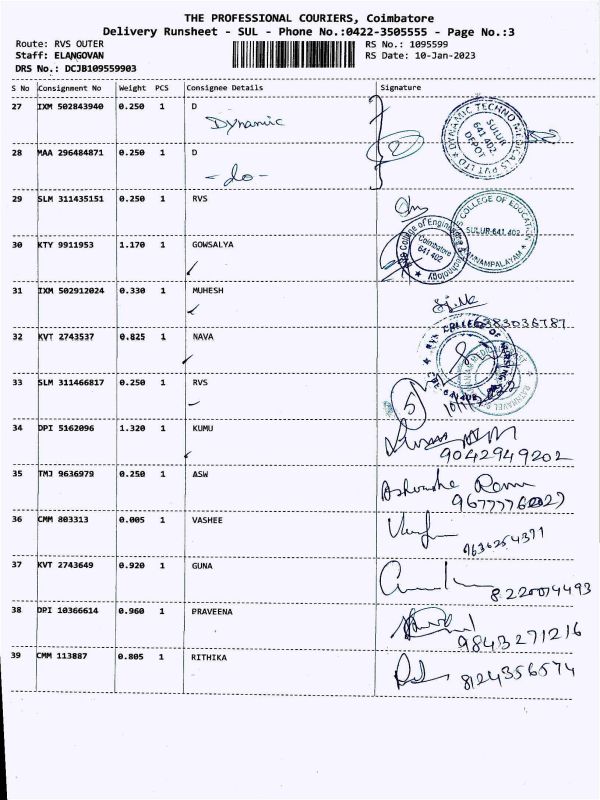 THE PROFESSIONAL COURIERS, Coimbatore
Delivery Runsheet - SUL - Phone No.:0422-3505555 - Page No.:3
Route: RVS OUTER RS No.: 1095599
Staff: ELANGOVAN RS Date: 10-Jan-2023
DRS No.: DCJB109559903
S No Consignment No Weight PCS Consignee Details Signature
27 IXM 502843940 0.250 1 D
Dynamic
DYNAMIC TECHNO MEDICALS PVT LTD
SULUR
641 402.
DEPOT
28 MAA 296484871 0.250 1 D
-do-
29 SLM 311435151 0.250 1 RVS
COLLEGE OF EDUCATION
SULUR-641 402.
30 KTY 9911953 1.170 1 GOWSALYA
College of Engineering & Technology
Coimbatore
641 402
31 IXM 502912024 0.330 1 MUHESH
6383036787
32 KVT 2743537 0.825 1 NAVA
33 SLM 311466817 0.250 1 RVS
5
34 DPI 5162096 1.320 1 KUMU
9042949202
35 TMJ 9636979 0.250 1 ASW
36 CMM 803313 0.005 1 VASHEE
9636254371
37 KVT 2743649 0.920 1 GUNA
8220074493
38 DPI 10366614 0.960 1 PRAVEENA
9843271216
39 CMM 113887 0.805 1 RITHIKA
8124356574